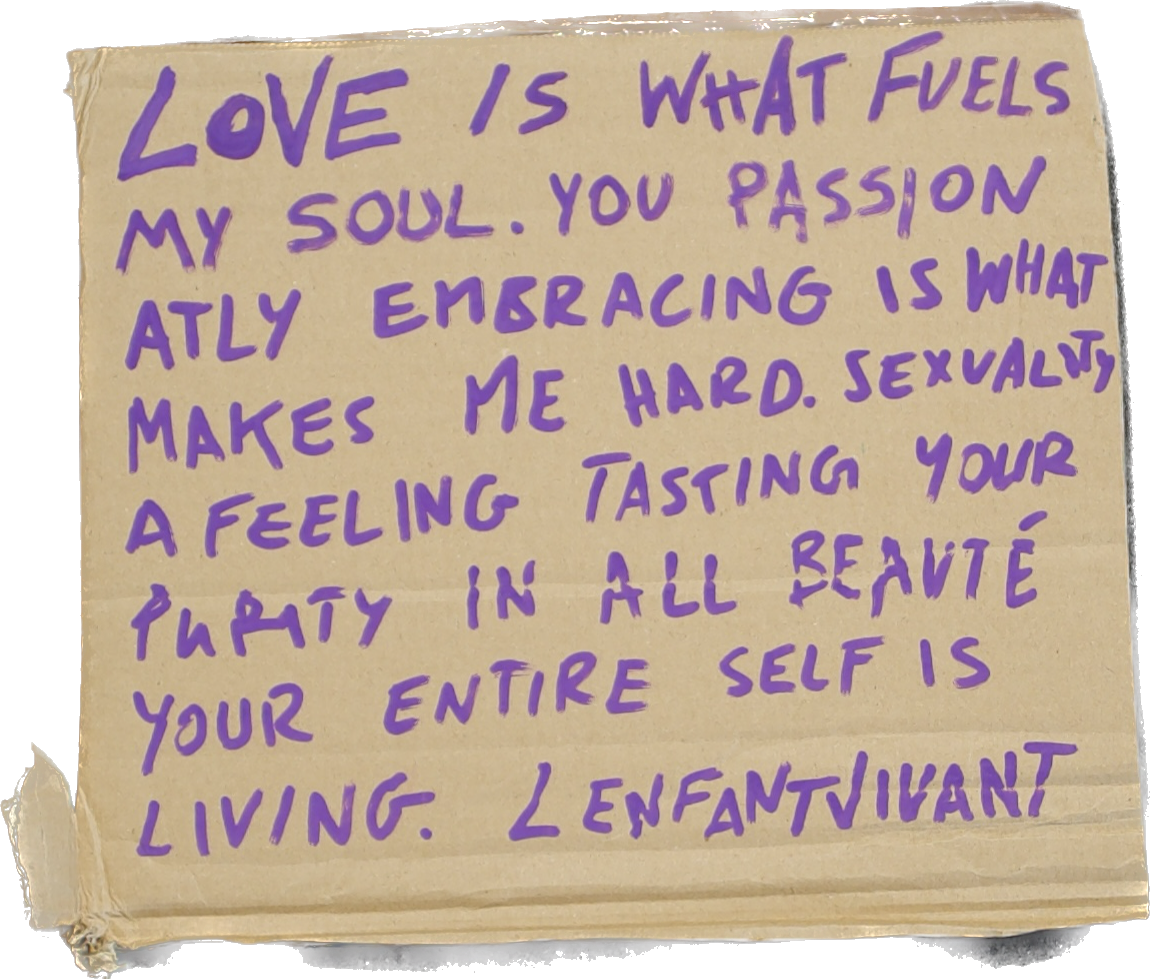 LOVE IS WHAT FUELS
MY SOUL. YOU PASSION
ATLY EMBRACING IS WHAT
MAKES ME HARD. SEXUALITY
A FEELING TASTING YOUR
PURITY IN ALL BEAUTÉ
YOUR ENTIRE SELF IS
LIVING. LENFANTVIVANT